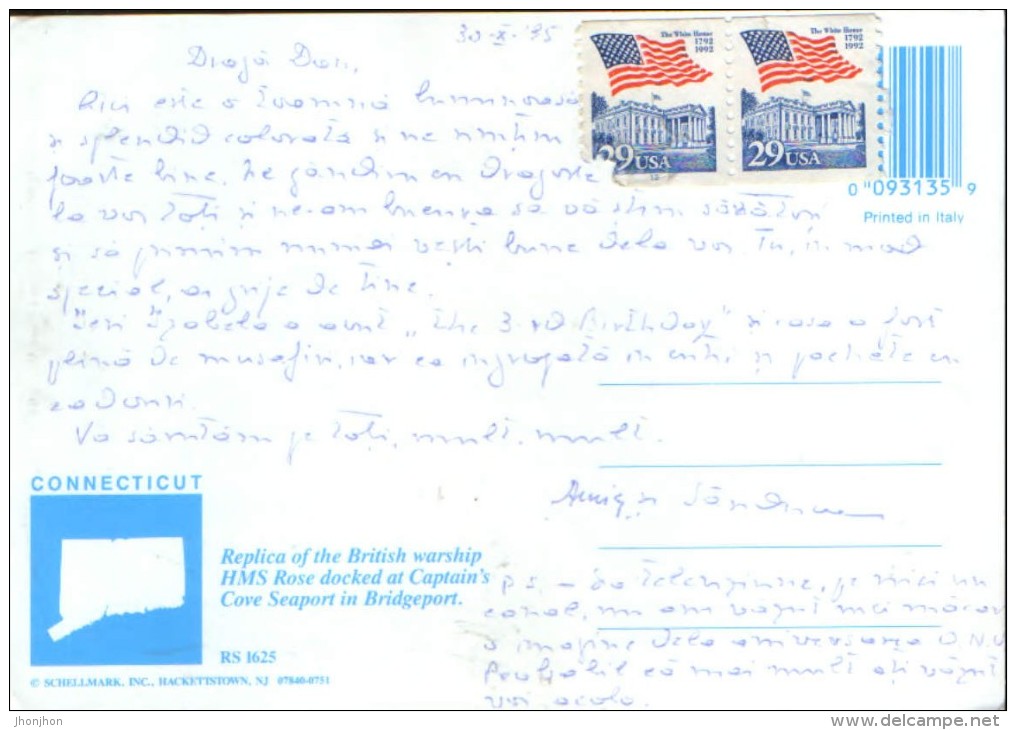 30-X-'95
The White House
1792
1992
29 USA
The White House
1792
1992
29 USA
0 093135 9
Printed in Italy
Dragă Dan,
Aici este o toamnă luminoasă
și splendid colorată și ne simțim
foarte bine. Ne gândim cu dragoste
la voi toți și ne-am bucura să vă știm sănătoși
și să primim numai vești bune dela voi. Tu, în mod
special, ai grije de tine.
Ieri Izabela a avut „The 3-rd Birthday" și casa a fost
plină de musafiri, iar ea îngropată în cutii și pachete cu
cadouri.
Vă sărutăm pe toți, mult, mult.
Sanda
CONNECTICUT
Replica of the British warship
HMS Rose docked at Captain's
Cove Seaport in Bridgeport.
RS 1625
© SCHELLMARK, INC., HACKETTSTOWN, NJ 07840-0751
P.S. - La televiziune, pe nici un
canal, nu am văzut nici măcar
o imagine dela aniversarea O.N.U.
Probabil că mai mult ați văzut
voi acolo.
jhonjhon
www.delcampe.net